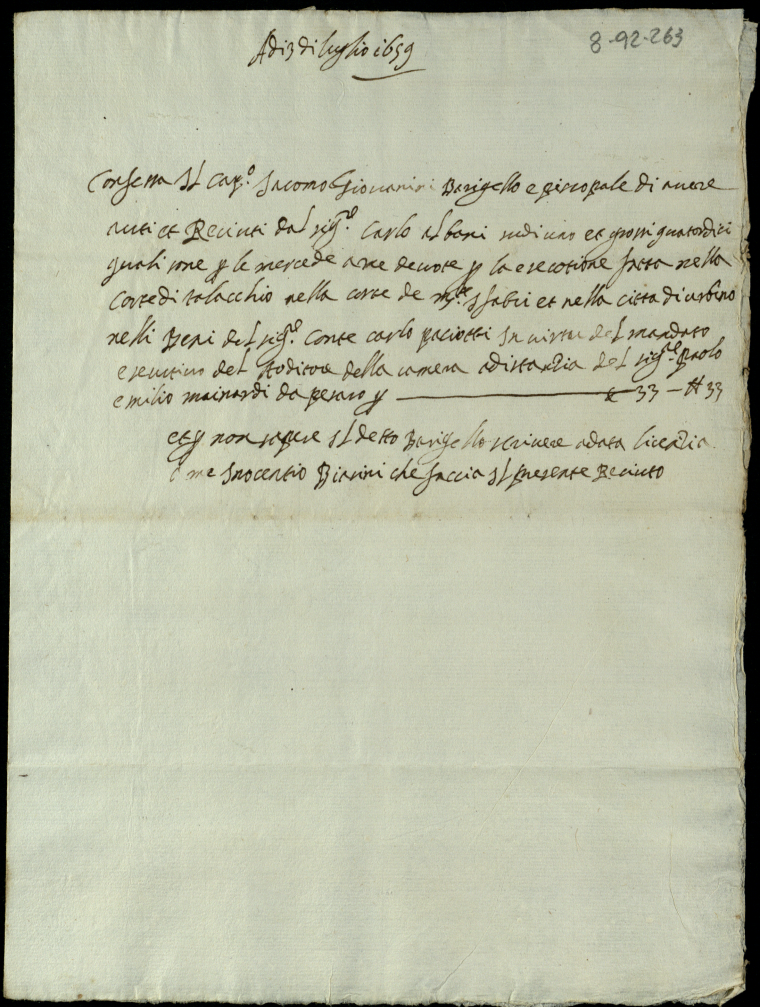 Adi 3 di luglio 1659
8-92-263
Confessa il Cap.o Jacomo Giovanini Barigello episcopale di avere
auti et Receuti dal sig.e Carlo Albani scudi uno et grossi quatordici
quali sone p le mercede a me devote p la esecotione fatta nella
Corte di talacchio nella corte de m.te Fabri et nella citta di urbino
nelli Beni del sig.e Conte carlo paciotti In virtu del mandato
esecutivo del Auditore della camera adistanzia del sig.re paolo
emilio mainardi da pesaro p 33 — 33
et p non sapere il detto Barigello scrivere a data licenzia
a me Inocentio Bianini che faccia il presente Receuto